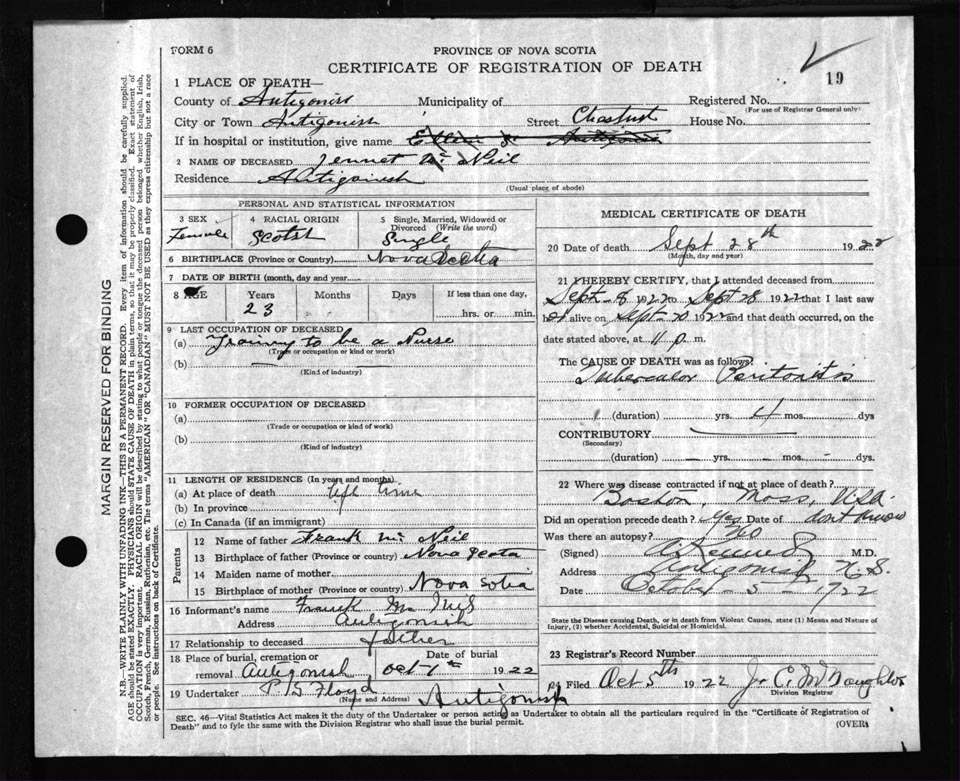 FORM 6
PROVINCE OF NOVA SCOTIA
CERTIFICATE OF REGISTRATION OF DEATH
19
1 PLACE OF DEATH—
County of Antigonish Municipality of Registered No.
(For use of Registrar General only)
City or Town Antigonish Street House No.
If in hospital or institution, give name
2 NAME OF DECEASED Jennet Mc Neil
Residence Antigonish
(Usual place of abode)
PERSONAL AND STATISTICAL INFORMATION
3 SEX 4 RACIAL ORIGIN 5 Single, Married, Widowed or Divorced (Write the word)
Female Scotsh Single
6 BIRTHPLACE (Province or Country) Nova Scotia
7 DATE OF BIRTH (month, day and year)
8 AGE Years Months Days If less than one day,
23 hrs. or min.
9 LAST OCCUPATION OF DECEASED
(a) Training to be a Nurse
(Trade or occupation or kind of work)
(b)
(Kind of industry)
10 FORMER OCCUPATION OF DECEASED
(a)
(Trade or occupation or kind of work)
(b)
(Kind of industry)
11 LENGTH OF RESIDENCE (In years and months)
(a) At place of death life time
(b) In province
(c) In Canada (if an immigrant)
Parents
12 Name of father Frank Mc Neil
13 Birthplace of father (Province or country) Nova Scota
14 Maiden name of mother
15 Birthplace of mother (Province or country) Nova Sotia
16 Informant's name Frank Mc Neil
Address Antigonish
17 Relationship to deceased father
18 Place of burial, cremation or removal Antigonish Date of burial Oct 1th 1922
19 Undertaker P. S. Floyd Antigonish
(Name and Address)
MEDICAL CERTIFICATE OF DEATH
20 Date of death Sept 28th 1922
(Month, day and year)
21 I HEREBY CERTIFY, that I attended deceased from
Sept 1922 to Sept 28 1922 that I last saw
alive on Sept 1922 and that death occurred, on
date stated above, at 11 p. m.
The CAUSE OF DEATH was as follows:
Tubercular Peritonitis
(duration) yrs. 4 mos. dys
CONTRIBUTORY
(Secondary)
(duration) yrs. mos. dys.
22 Where was disease contracted if not at place of death?
Boston, Mass, USA.
Did an operation precede death? Yes Date of dont know
Was there an autopsy? No
(Signed) M.D.
Address Antigonish N. S.
Date October - 5 - 1922
State the Disease causing Death, or in death from Violent Causes, state (1) Means and Nature of Injury, (2) whether Accidental, Suicidal or Homicidal.
23 Registrar's Record Number
24 Filed Oct 5th 1922
Division Registrar
SEC. 46—Vital Statistics Act makes it the duty of the Undertaker or person acting as Undertaker to obtain all the particulars required in the "Certificate of Registration of
Death" and to fyle the same with the Division Registrar who shall issue the burial permit.
(OVER)
MARGIN RESERVED FOR BINDING
N.B.—WRITE PLAINLY WITH UNFADING INK—THIS IS A PERMANENT RECORD. Every item of information should be carefully supplied.
AGE should be stated EXACTLY. PHYSICIANS should STATE CAUSE OF DEATH in plain terms, so that it may be properly classified. Exact statement of
OCCUPATION is very important. RACIAL ORIGIN will be described by stating to what people or tongue the deceased person belonged, whether English, Irish,
Scotch, French, German, Russian, Ruthenian, etc. The terms "AMERICAN" OR "CANADIAN" MUST NOT BE USED as they express citizenship but not a race
or people. See instructions on back of Certificate.